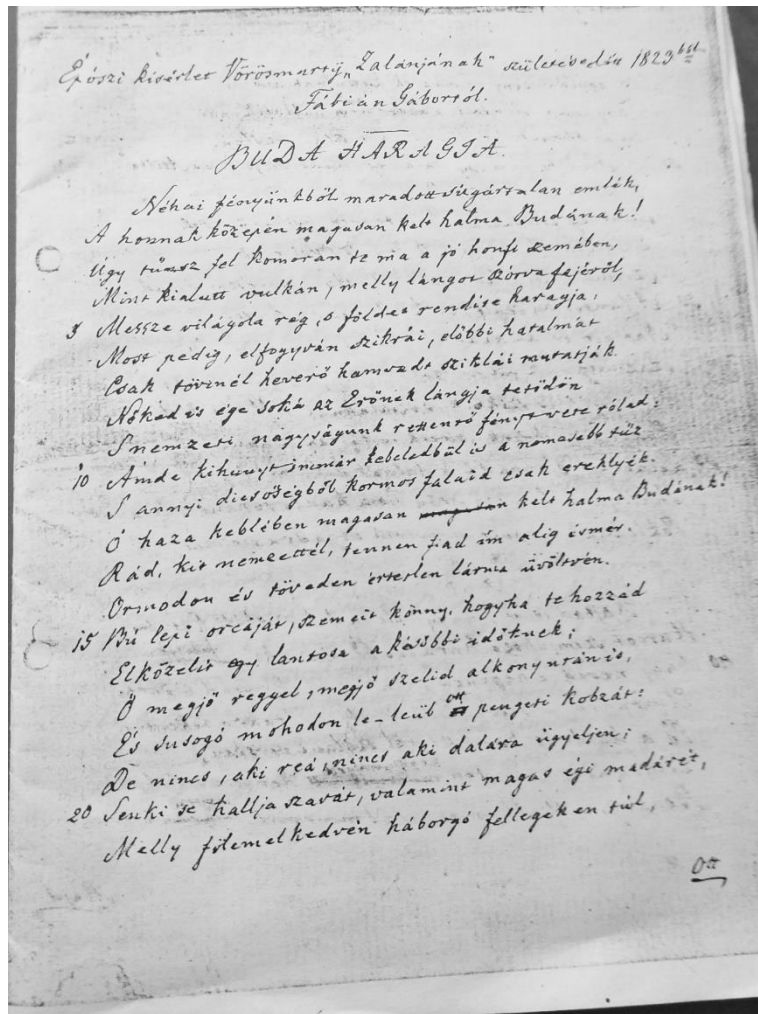 Épószi kisérlet Vörösmarty „Zalánjának" születésekor 1823ból
Fábián Gábortól.
BUDA HARAGJA.
Néhai fényünkből maradott sugártalan emlék,
A honnak közepén magasan kelt halma Budának!
Úgy tünsz fel komoran te ma a jó honfi szemében,
Mint kialutt vulkán, melly lángot szórva fejéről,
5 Messze világola rég, s földet rendite haragja:
Most pedig, elfogyván szikrái, előbbi hatalmát
Csak tövinél heverő hamvadt sziklái mutatják.
Néked is ége soká az Erőnek lángja tetődön
S nemzeti nagyságunk rettentő fényt vete rólad:
10 Ámde kihunyt immár kebeledből is a nemesebb tűz
S annyi dicsőségből kormos falaid csak ereklyék.
Ó haza keblében magasan kelt halma Budának!
Rád, kit nemzettél, tennen fiad ím alig ismér.
Ormodon és töveden értetlen lárma üvöltvén.
15 Bú lepi orcáját, szemeit könny, hogyha tehozzád
Elközelít egy lantosa a késöbbi időknek;
Ő megjő reggel, megjő szelid alkonyután is,
És susogó mohodon le-leül ott pengeti kobzát:
De nincs, aki reá, nincs aki dalára ügyeljen;
20 Senki se hallja szavát, valamint magas égi madárét,
Melly fölemelkedvén háborgó fellegeken túl,
Ott